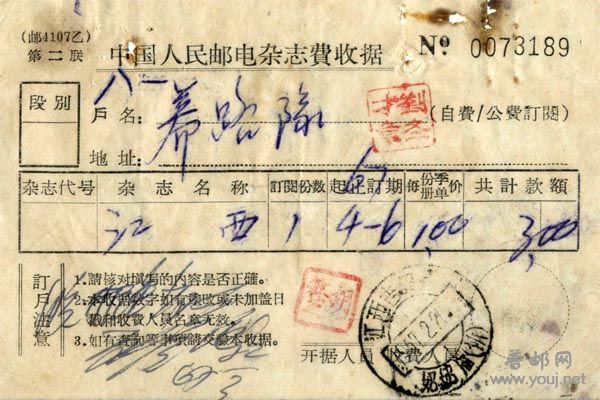 (邮4107乙)
第二联
中国人民邮电杂志費收据 № 0073189
段別
八一
戶名: 养路隊 (自費/公費訂閱)
地址:
杂志代号 杂志名称 訂閱份数 起止訂期 每份季册单价 共計款額
67
江西 1 4-6 1,00 3,00
訂戶注意
1.請核对填写的內容是否正確。
2.本收据数字如有塗改或未加盖日
戳和收費人員名章无效。
3.如有查詢等事項請交驗本收据。
开据人員 收費人員
江西
善邮网
www.youj.net